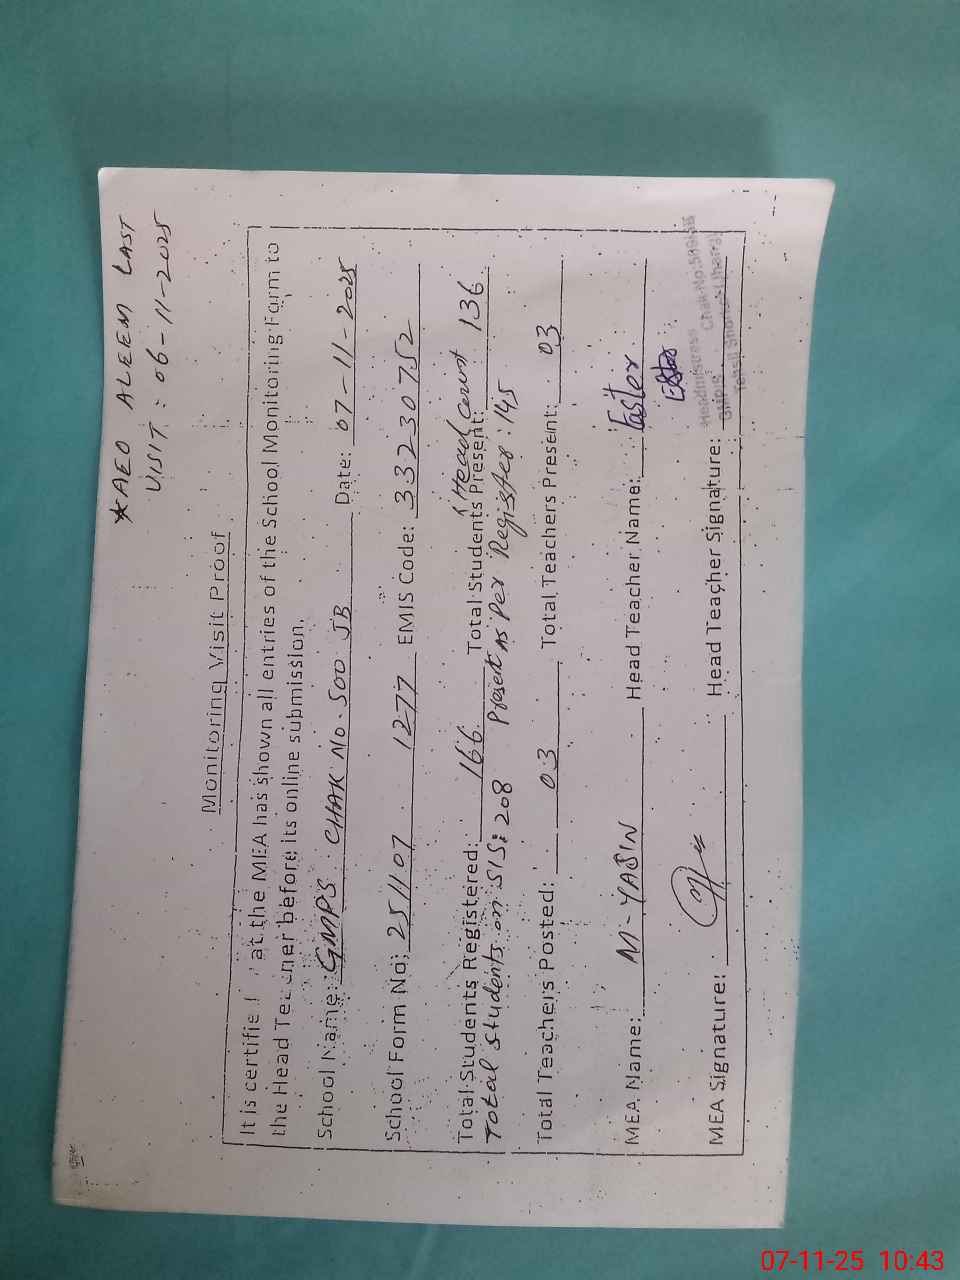 *AEO ALEEM LAST
VISIT : 06-11-2025
Monitoring Visit Proof
It is certifie at the MEA has shown all entries of the School Monitoring Form to
the Head Teacher before its online submission.
School Name: GMPS CHAK No. 500 JB Date: 07-11-2025
School Form No: 251107 1277 EMIS Code: 33230752
Head Count
Total Students Registered: 166 Total Students Present: 136
Total Students on SIS: 208 Present As Per Register: 145
Total Teachers Posted: 03 Total Teachers Present: 03
MEA Name: M-YASIN Head Teacher Name: Easter
MEA Signature: Head Teacher Signature:
Headmistress
GMPS Chak No.
07-11-25 10:43